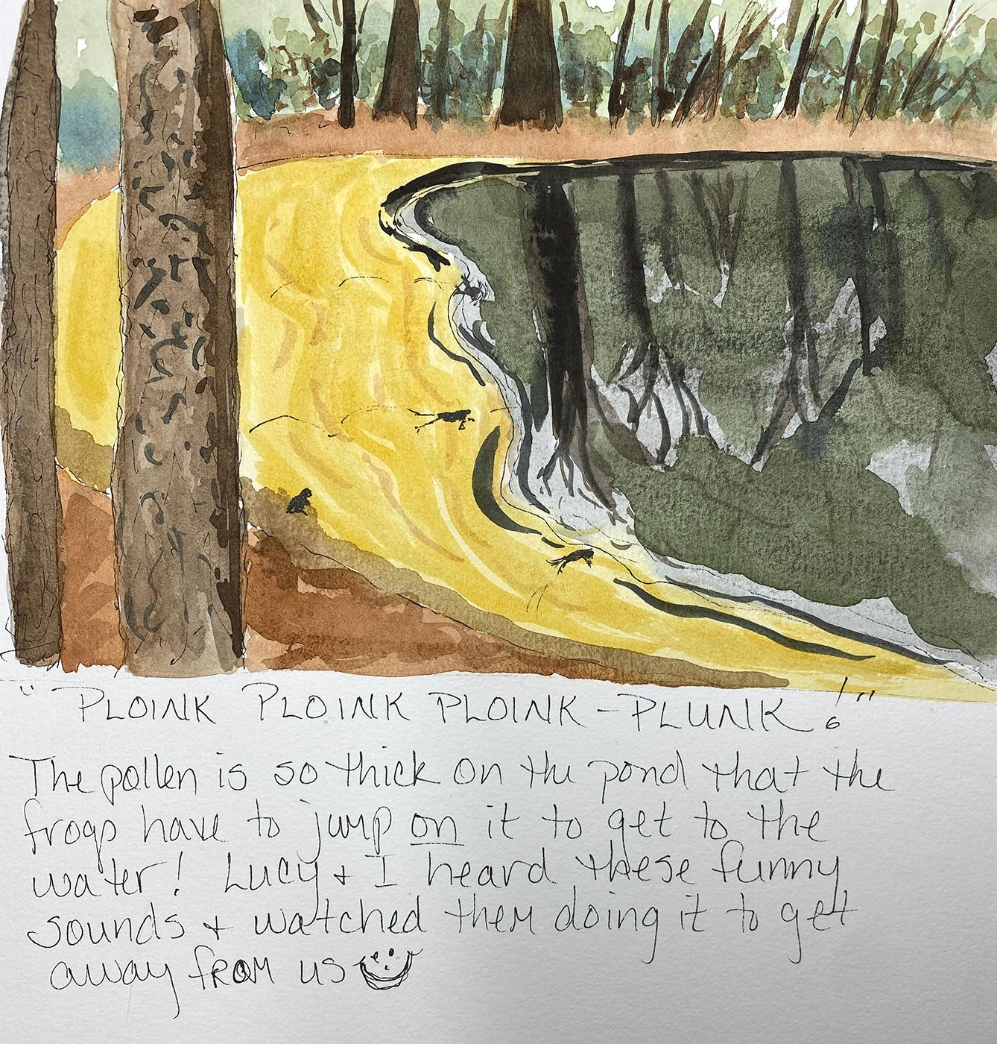 "PLOINK PLOINK PLOINK - PLUNK!"
The pollen is so thick on the pond that the
frogs have to jump on it to get to the
water! Lucy + I heard these funny
sounds + watched them doing it to get
away from us